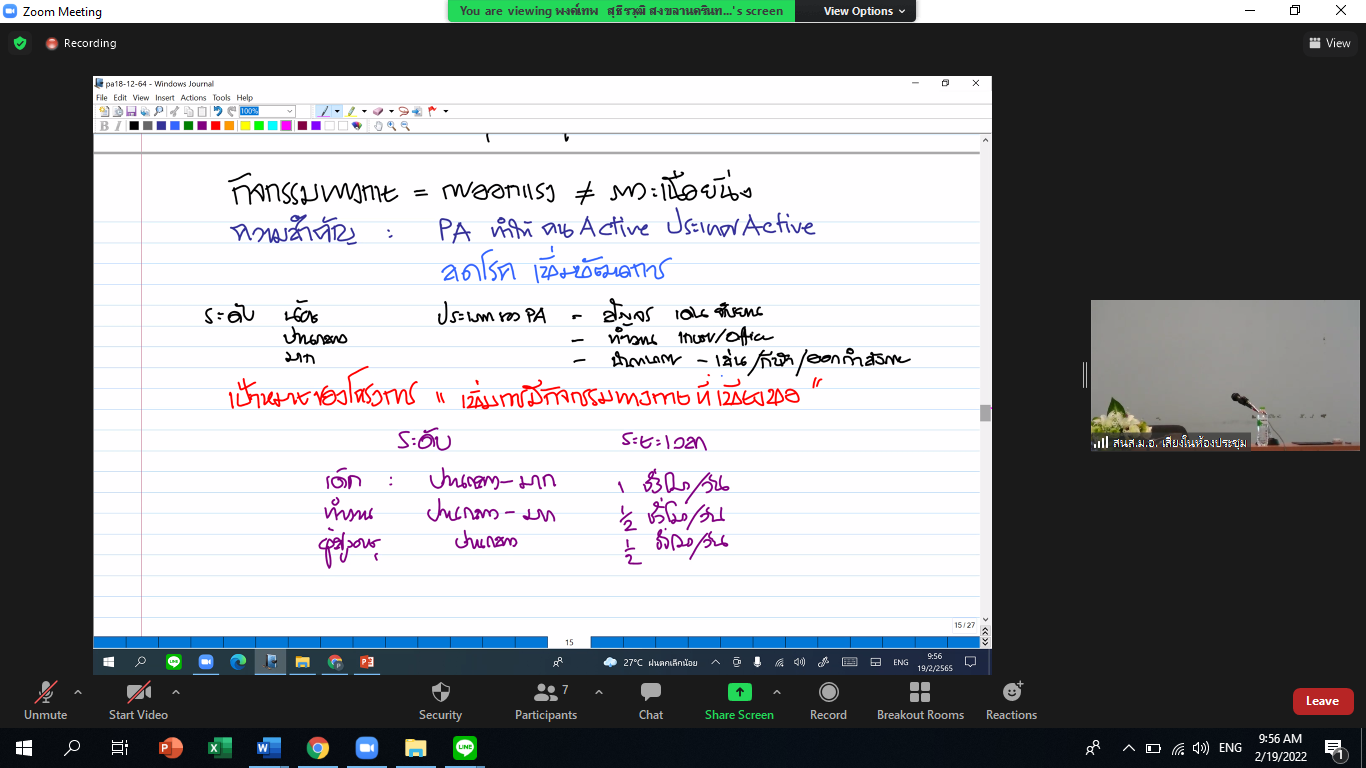 Zoom Meeting
You are viewing พงค์เทพ สุธีรวุฒิ สงขลานครินท...'s screen
View Options
Recording
View
pa18-12-64 - Windows Journal
File Edit View Insert Actions Tools Help
100%
B I
กิจกรรมทางกาย = การออกแรง ≠ ภาวะเนือยนิ่ง
ความสำคัญ : PA ทำให้ คน Active ประเทศ Active
ลดโรค เพิ่มพัฒนาการ
ระดับ น้อย ประเภทของ PA - สัญจร เดิน จักรยาน
ปานกลาง - ทำงาน เกษตร/Office
มาก - นันทนาการ - เล่น/กีฬา/ออกกำลังกาย
เป้าหมายของโครงการ " เพิ่มการมีกิจกรรมทางกายที่เพียงพอ "
ระดับ ระยะเวลา
เด็ก : ปานกลาง - มาก 1 ชั่วโมง/วัน
ทำงาน ปานกลาง - มาก 1/2 ชั่วโมง/วัน
ผู้สูงอายุ ปานกลาง 1/2 ชั่วโมง/วัน
15/27
15
27°C ฝนตกเล็กน้อย
ENG
9:56
19/2/2565
สนส.ม.อ. เสียงในห้องประชุม
Unmute
Start Video
Security
Participants
7
Chat
Share Screen
Record
Breakout Rooms
Reactions
Leave
ENG
9:56 AM
2/19/2022
1